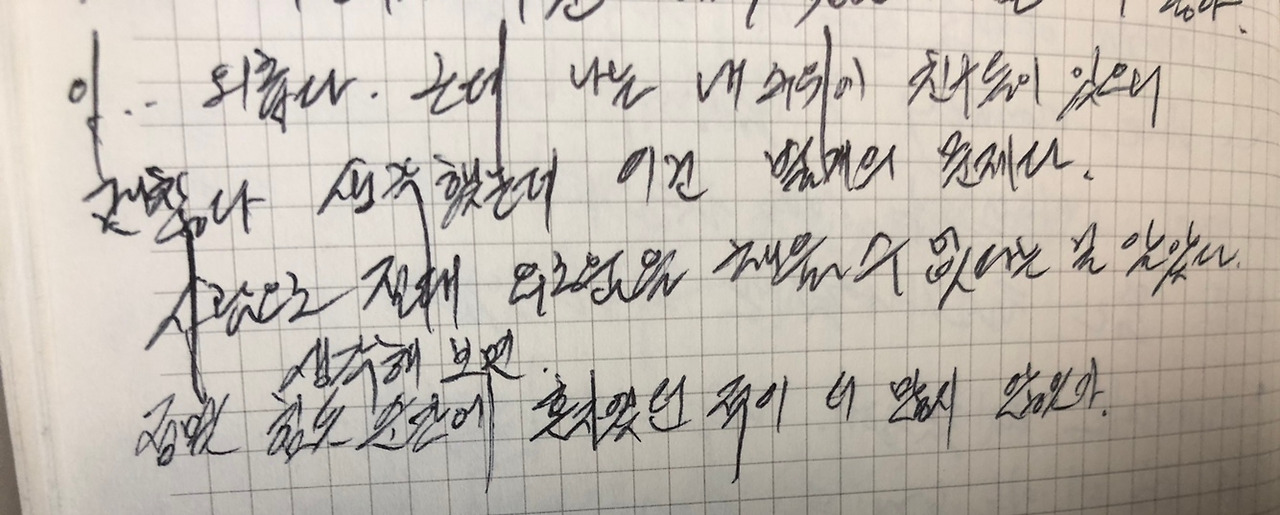 아.. 외롭다. 근데 나는 내 주위에 친구들이 있으니
괜찮다 생각했는데 이건 별개의 문제다.
사람으로 절대 외로움을 채울 수 없다는 걸 알았다.
생각해 보면
정말 힘든 순간에 혼자였던 적이 더 많지 않았나.